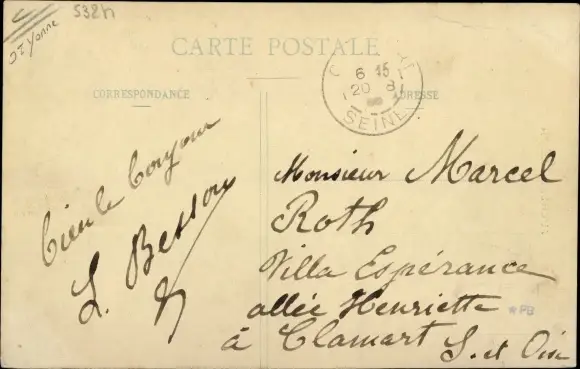 5324
Yonne
CARTE POSTALE
CORRESPONDANCE
ADRESSE
6 15
20 8
SEINE
bonjour
L. Besson
Monsieur Marcel
Roth
Villa Espérance
allée Henriette
à Clamart S. et Oise
PB